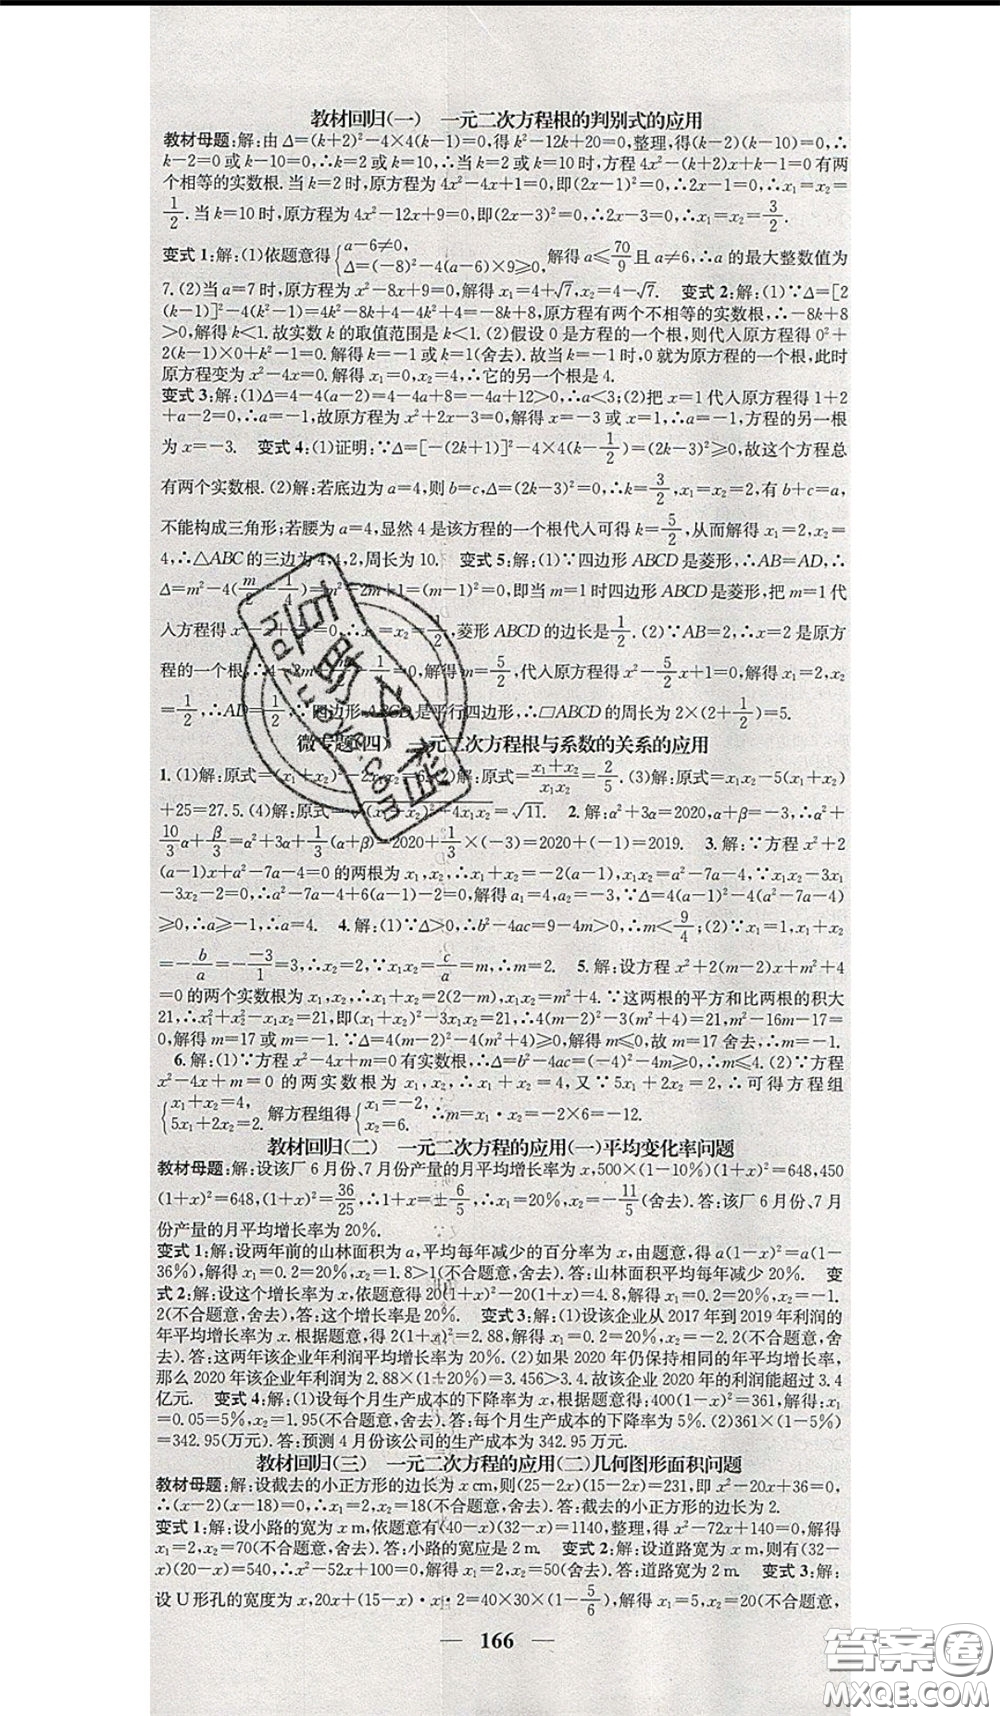 教材回归(一) 一元二次方程根的判别式的应用
教材母题:解:由Δ=(k+2)²-4×4(k-1)=0,得k²-12k+20=0,整理,得(k-2)(k-10)=0,∴
k-2=0或k-10=0,∴k=2或k=10,∴当k=2或k=10时,方程4x²-(k+2)x+k-1=0有两
个相等的实数根.当k=2时,原方程为4x²-4x+1=0,即(2x-1)²=0,∴2x-1=0,∴x₁=x₂=
1/2.当k=10时,原方程为4x²-12x+9=0,即(2x-3)²=0,∴2x-3=0,∴x₁=x₂=3/2.
变式1:解:(1)依题意得{a-6≠0, Δ=(-8)²-4(a-6)×9≥0, 解得a≤70/9且a≠6,∴a的最大整数值为
7.(2)当a=7时,原方程为x²-8x+9=0,解得x₁=4+√7,x₂=4-√7. 变式2:解:(1)∵Δ=[2
(k-1)]²-4(k²-1)=4k²-8k+4-4k²+4=-8k+8,原方程有两个不相等的实数根,∴-8k+8
>0,解得k<1.故实数k的取值范围是k<1.(2)假设0是方程的一个根,则代入原方程得0²+
2(k-1)×0+k²-1=0.解得k=-1或k=1(舍去).故当k=-1时,0就为原方程的一个根,此时
原方程变为x²-4x=0.解得x₁=0,x₂=4,∴它的另一个根是4.
变式3:解:(1)Δ=4-4(a-2)=4-4a+8=-4a+12>0,∴a<3;(2)把x=1代入原方程得1+2
+a-2=0,∴a=-1,故原方程为x²+2x-3=0,解得x=-3或x=1,∴a=-1,方程的另一根
为x=-3. 变式4:(1)证明:∵Δ=[-(2k+1)]²-4×4(k-1/2)=(2k-3)²≥0,故这个方程总
有两个实数根.(2)解:若底边为a=4,则b=c,Δ=(2k-3)²=0,∴k=3/2,x₁=x₂=2,有b+c=a,
不能构成三角形;若腰为a=4,显然4是该方程的一个根代入可得k=5/2,从而解得x₁=2,x₂=
4,∴△ABC的三边为4,4,2,周长为10. 变式5:(1)∵四边形ABCD是菱形,∴AB=AD,∴
Δ=m²-4(m/2-1/4)=m²-2m+1=(m-1)²=0,即当m=1时四边形ABCD是菱形,把m=1代
入方程得x=0,∴x₁=x₂=1/2,菱形ABCD的边长是1/2.(2)∵AB=2,∴x=2是原方
程的一个根,∴4-1/2=0,解得m=5/2,代入原方程得x²-5/2x+1=0,解得x₁=2,x₂
=1/2,∴AD=1/2,∵四边形ABCD是平行四边形,∴□ABCD的周长为2×(2+1/2)=5.
微专题(四) 一元二次方程根与系数的关系的应用
1.(1)解:原式=(x₁+x₂)²-2x₁x₂ 解:原式=(x₁+x₂)/(x₁x₂)=2/5.(3)解:原式=x₁x₂-5(x₁+x₂)
+25=27.5.(4)解:原式=√((x₁+x₂)²-4x₁x₂)=√11. 2.解:α²+3α=2020,α+β=-3,∴α²+
10/3α+β/3=α²+3α+1/3(α+β)=2020+1/3×(-3)=2020+(-1)=2019. 3.解:∵方程x²+2
(a-1)x+a²-7a-4=0的两根为x₁,x₂,∴x₁+x₂=-2(a-1),x₁x₂=a²-7a-4,∵x₁x₂-3x₁
-3x₂-2=0,∴a²-7a-4+6(a-1)-2=0,解得a₁=4,a₂=-3,∵Δ=4(a-1)²-4(a²-7a-4)
≥0,∴a≥-1,∴a=4. 4.解:(1)∵Δ>0,∴b²-4ac=9-4m>0,∴m<9/4;(2)∵x₁=1,x₁+x₂
=-b/a=-(-3)/1=3,∴x₂=2,∵x₁x₂=c/a=m,∴m=2. 5.解:设方程x²+2(m-2)x+m²+4
=0的两个实数根为x₁,x₂,∴x₁+x₂=2(2-m),x₁x₂=m²+4.∵这两根的平方和比两根的积大
21,∴x₁²+x₂²-x₁x₂=21,即(x₁+x₂)²-3x₁x₂=21,∴4(m-2)²-3(m²+4)=21,m²-16m-17=
0,解得m=17或m=-1.∵Δ=4(m-2)²-4(m²+4)≥0,解得m≤0,故m=17舍去,∴m=-1.
6.解:(1)∵方程x²-4x+m=0有实数根,∴Δ=b²-4ac=(-4)²-4m≥0,∴m≤4.(2)∵方程
x²-4x+m=0的两实数根为x₁,x₂,∴x₁+x₂=4,又∵5x₁+2x₂=2,∴可得方程组
{x₁+x₂=4, 5x₁+2x₂=2. 解方程组得{x₁=-2, x₂=6. ∴m=x₁·x₂=-2×6=-12.
教材回归(二) 一元二次方程的应用(一)平均变化率问题
教材母题:解:设该厂6月份、7月份产量的月平均增长率为x,500×(1-10%)(1+x)²=648,450
(1+x)²=648,(1+x)²=36/25,∴1+x=±6/5,∴x₁=20%,x₂=-11/5(舍去).答:该厂6月份、7月
份产量的月平均增长率为20%.
变式1:解:设两年前的山林面积为a,平均每年减少的百分率为x,由题意,得a(1-x)²=a(1-
36%),解得x₁=0.2=20%,x₂=1.8>1(不合题意,舍去).答:山林面积平均每年减少20%. 变
式2:解:设这个增长率为x,依题意得20(1+x)²-20(1+x)=4.8,解得x₁=0.2=20%,x₂=-1.
2(不合题意,舍去).答:这个增长率是20%. 变式3:解:(1)设该企业从2017年到2019年利润的
年平均增长率为x.根据题意,得2(1+x)²=2.88,解得x₁=0.2=20%,x₂=-2.2(不合题意,舍
去).答:这两年该企业年利润平均增长率为20%.(2)如果2020年仍保持相同的年平均增长率,
那么2020年该企业年利润为2.88×(1+20%)=3.456>3.4.故该企业2020年的利润能超过3.4
亿元. 变式4:解:(1)设每个月生产成本的下降率为x,根据题意得:400(1-x)²=361,解得:x₁
=0.05=5%,x₂=1.95(不合题意,舍去).答:每个月生产成本的下降率为5%.(2)361×(1-5%)
=342.95(万元).答:预测4月份该公司的生产成本为342.95万元.
教材回归(三) 一元二次方程的应用(二)几何图形面积问题
教材母题:解:设截去的小正方形的边长为x cm,则(25-2x)(15-2x)=231,即x²-20x+36=0,
∴(x-2)(x-18)=0,∴x₁=2,x₂=18(不合题意,舍去).答:截去的小正方形的边长为2.
变式1:解:设小路的宽为x m,依题意有(40-x)(32-x)=1140,整理,得x²-72x+140=0,解得
x₁=2,x₂=70(不合题意,舍去).答:小路的宽应是2 m. 变式2:解:设道路宽为x m,则有(32-
x)(20-x)=540,∴x²-52x+100=0,解得x₁=2,x₂=50(舍去).答:道路宽为2 m. 变式3:解:
设U形孔的宽度为x,20x+(15-x)·x·2=40×30×(1-5/6),解得x₁=5,x₂=20(不合题意,
166
互助文档
hdzuoye.com
答案卷
MXQE.COM